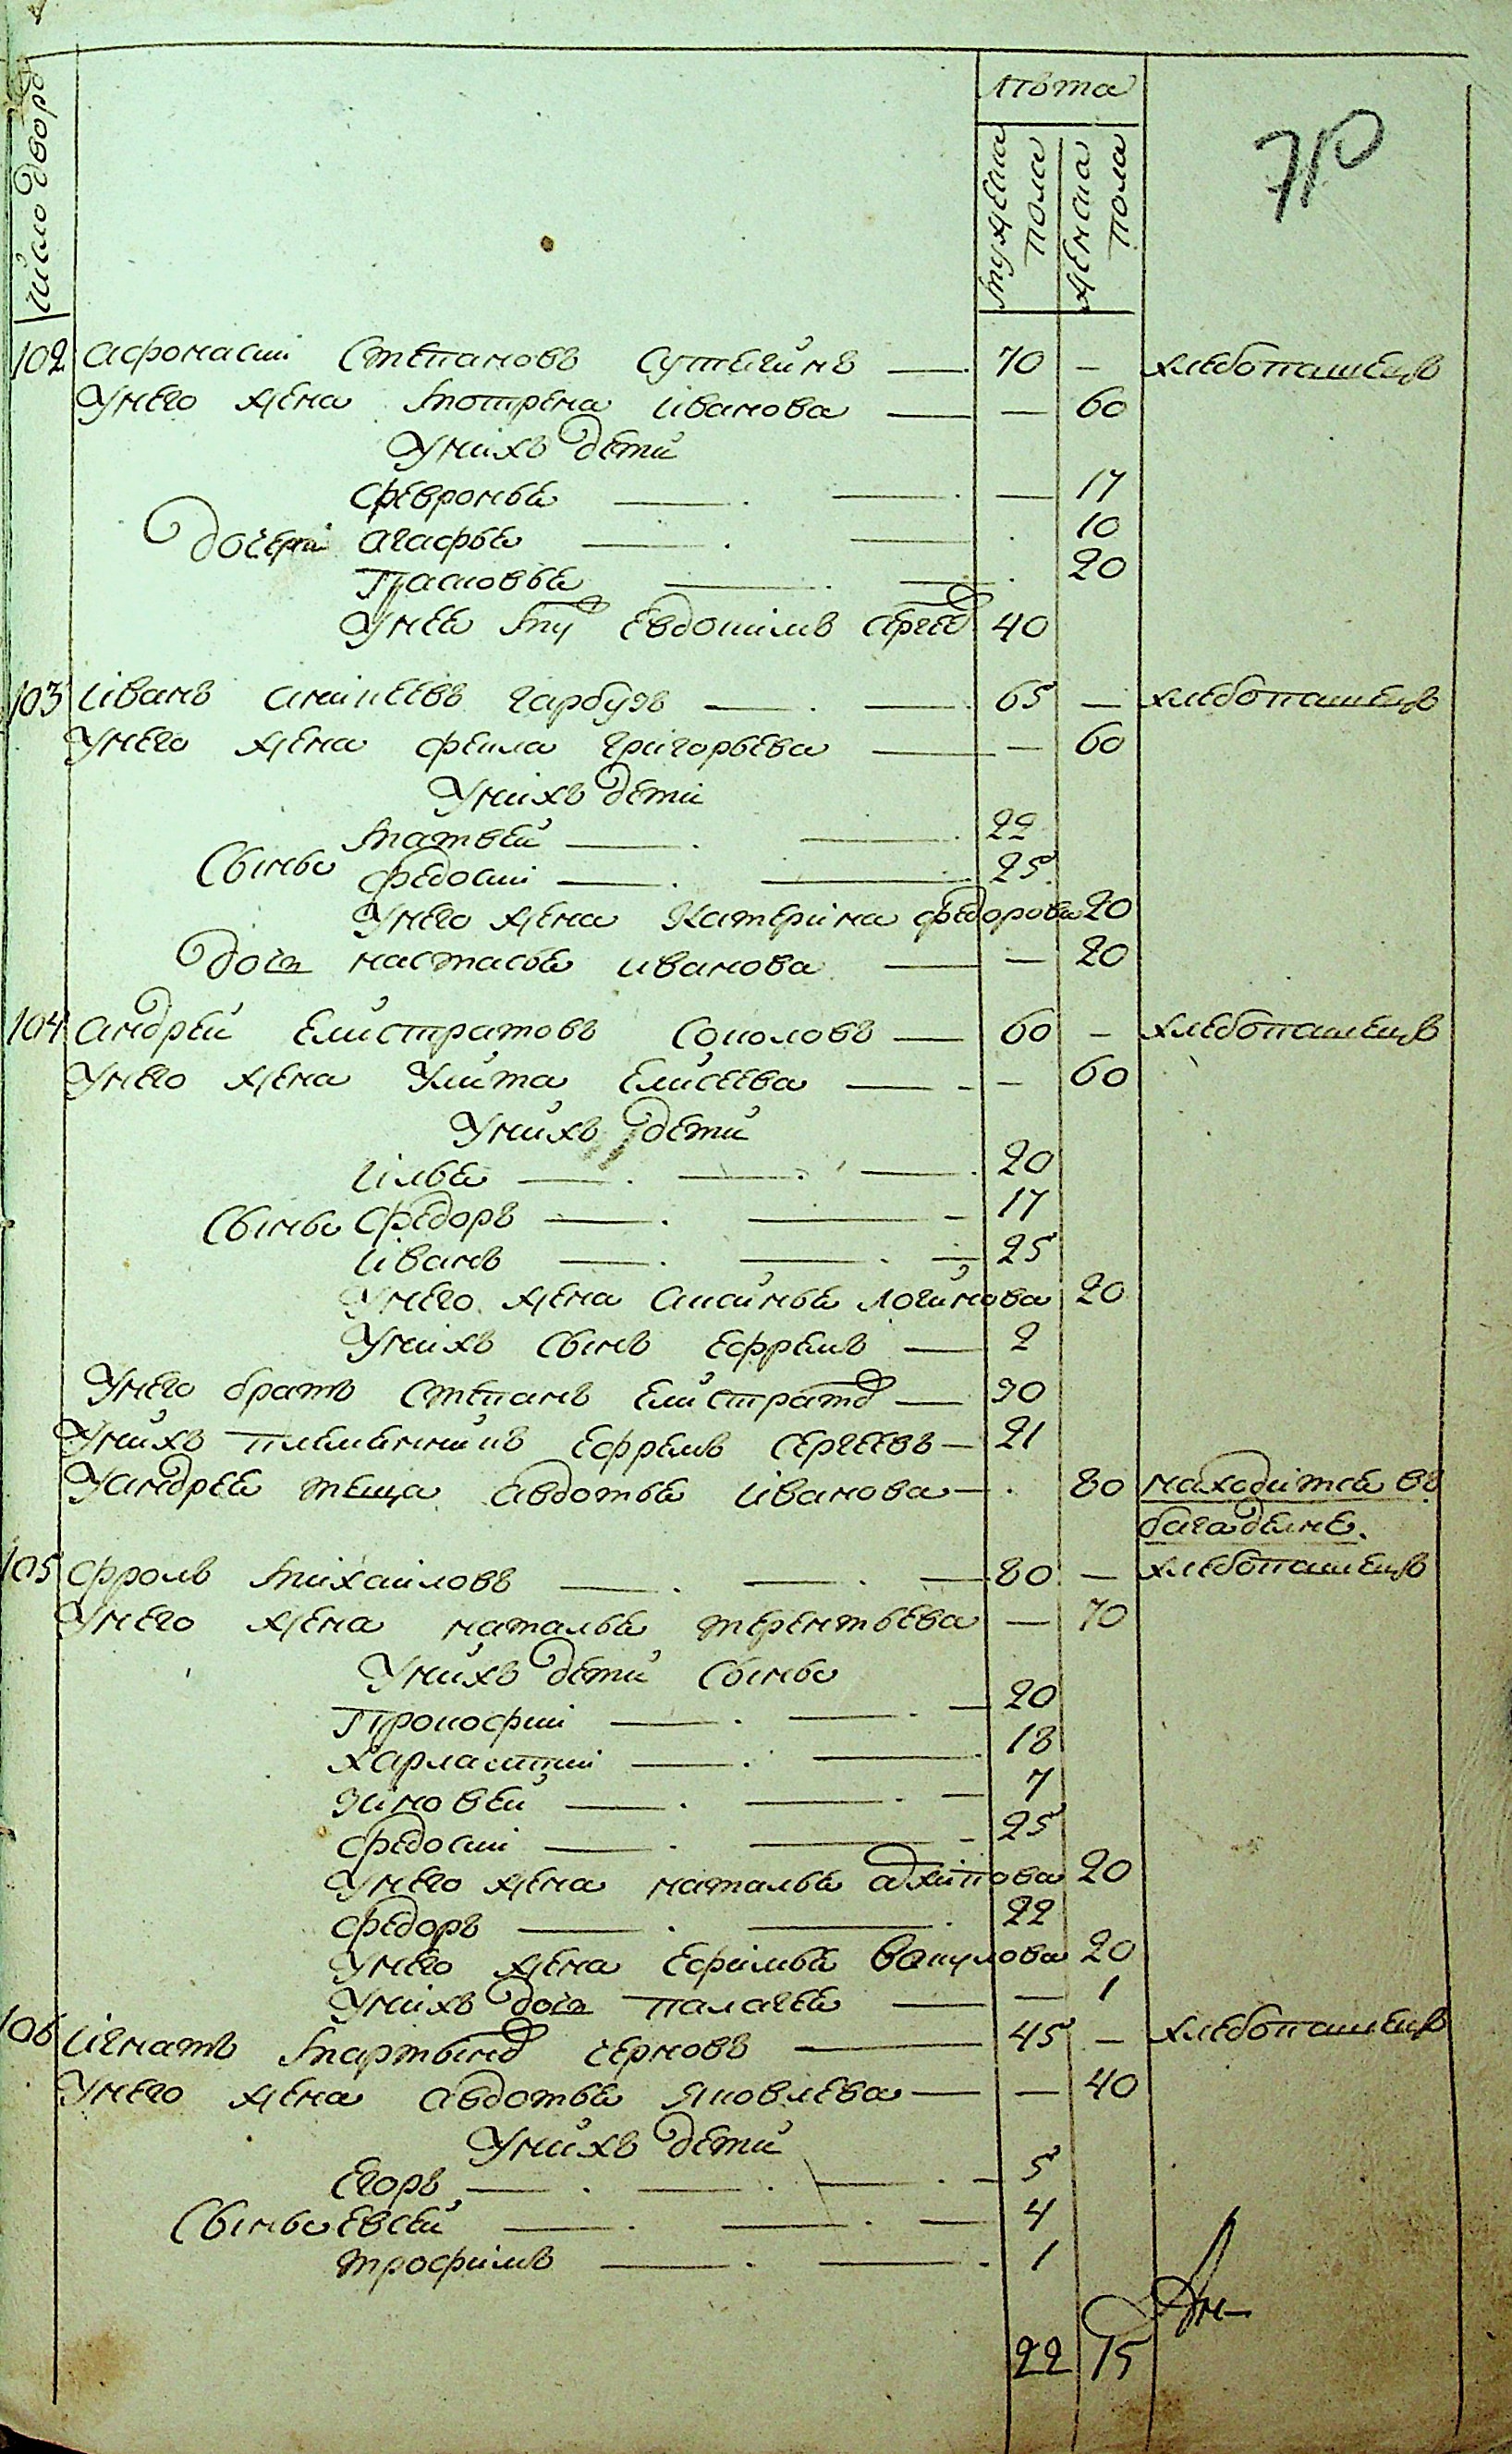 число дворо
лѣта
мужеска пола
женска пола
710
102 афонасиі степановъ сутягинъ 70 — хлебопашецъ
Унего жена мотрена іванова — 60
Унихъ дети
февронья — 17
дочери агафья 10
Прасковья 20
Унее му евдокимъ сергее 40
103 іванъ аникеевъ гарбузъ 65 — хлебопашецъ
Унего жена фекла григорьева — 60
Унихъ дети
матвей 22
Сыньы федосиі 25
Унего жена катерина федорова 20
дочь настасья иванова — 20
104 андрей елистратовъ соколовъ 60 — хлебопашецъ
Унего жена Улита елисеева — 60
Унихъ дети
ілья 20
Сыньы федоръ 17
іванъ 25
Унего жена аксинья логинова 20
Унихъ сынъ ефремъ 2
Унего братъ степанъ елистрато 30
Унихъ племянникъ ефремъ сергеевъ 21
Уандрея теща авдотья іванова 80 находится въ
багаделне.
105 фролъ михаиловъ 80 — хлебопашецъ
Унего жена наталья терентьева — 70
Унихъ дети сыньы
Прокофиі 20
харлампиі 18
зиновей 7
федосиі 25
Унего жена наталья архипова 20
федоръ 22
Унего жена ефимья вакулова 20
Унихъ дочь палагея — 1
106 ігнатъ мартыно черновъ 45 — хлебопашецъ
Унего жена авдотья яковлева — 40
Унихъ дети
егоръ 5
Сыньы евсей 4
трофимъ 1
22 15